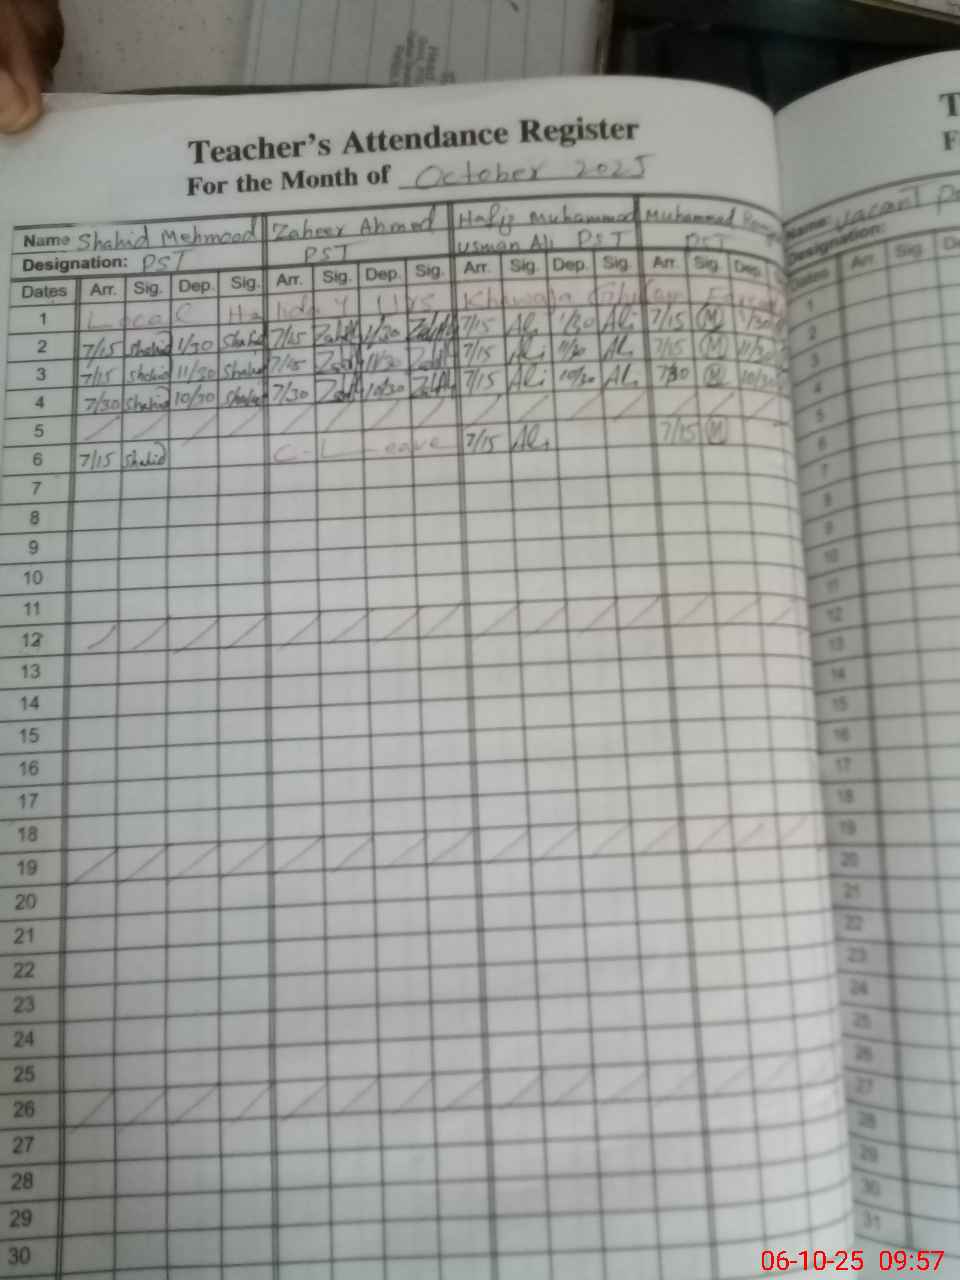 Teacher's Attendance Register
For the Month of October 2025
Name Shahid Mehmood Zaheer Ahmed Hafiz Muhammad Muhammad
Designation: PST PST Usman Ali PST PST
Dates Arr. Sig. Dep. Sig. Arr. Sig. Dep. Sig. Arr. Sig. Dep. Sig. Arr. Sig. Dep.
1 Local Holiday Urs Khawaja
2 7/15 Shahid 1/30 Shahid 7/15 1/30 7/15 Ali 1/30 Ali 7/15 M 1/30
3 7/15 Shahid 11/30 Shahid 7/15 11/30 7/15 Ali 11/30 Ali 7/15 M 11/30
4 7/30 Shahid 10/30 Shahid 7/30 10/30 7/15 Ali 10/30 Ali 7/30 M 10/30
5
6 7/15 Shahid C-Leave 7/15 Ali 7/15 M
7
8
9
10
11
12
13
14
15
16
17
18
19
20
21
22
23
24
25
26
27
28
29
30
Name: Vacant
Designation:
Dates Arr. Sig.
1
2
3
4
5
6
7
8
9
10
11
12
13
14
15
16
17
18
19
20
21
22
23
24
25
26
27
28
29
30
31
06-10-25 09:57